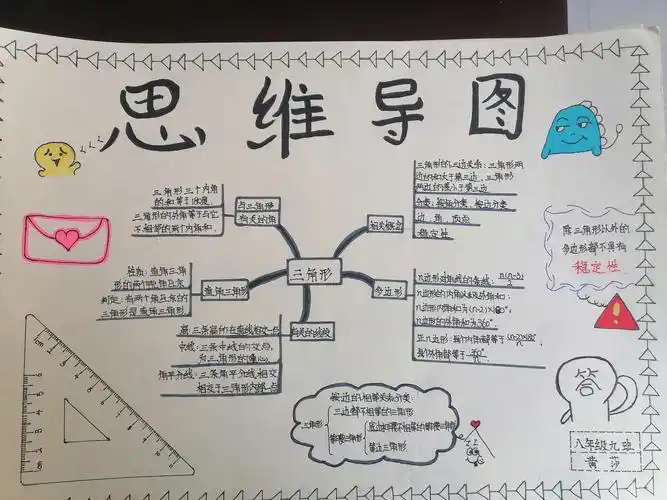 思维导图
三角形
与三角形
有关的角
三角形三个内角
的和等于180度.
三角形的外角等于与它
不相邻的两个内角和.
直角三角形
性质:直角三角
形的两个锐角互余
判定:有两个角互余的
三角形是直角三角形
有关的线段
高:三条高的在直线相交一点
中线:三条中线的交点,
为三角形的重心.
角平分线:三条角平分线相交
相交于三角形内部一点
相关概念
三角形的三边关系:三角形两
边的和大于第三边,三角形
两边的差小于第三边
分类:按角分类 按边分类
边、角、顶点
稳定性
多边形
n边形对角线的条数:n(n-3)/2
n边形的内角以及外角和:
n边形内角和为(n-2)×180°,
n边形的外角和为360°
正n边形:每个内角都等于(n-2)×180°/n,
每个外角都等于360°/n
除三角形以外的
多边形都不具有
稳定性
按边的相等关系分类:
三角形
三边都不相等的三角形
等腰三角形
底边和腰不相等的等腰三角形
等边三角形
答
八年级九班
黄莎